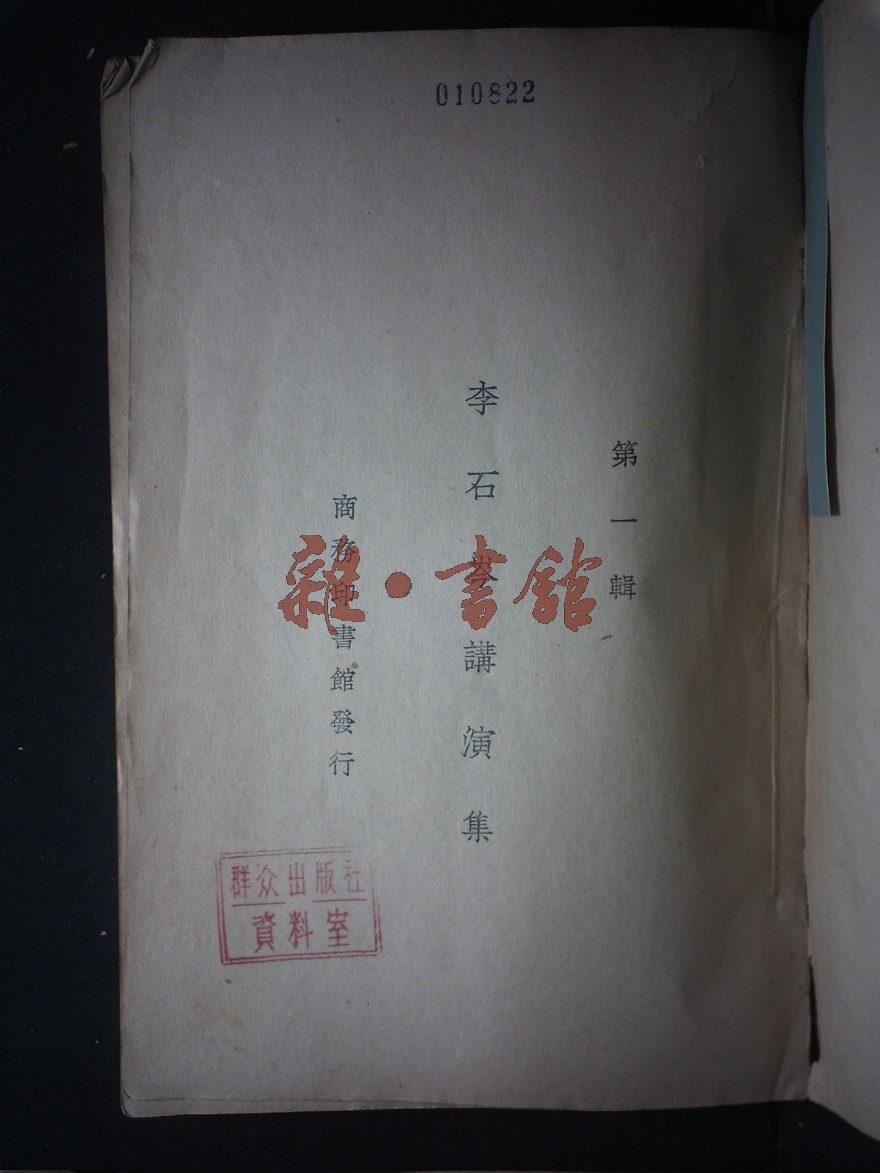 010822
第一輯
李石岑講演集
商務印書館發行
雜·書館
群众出版社
資料室